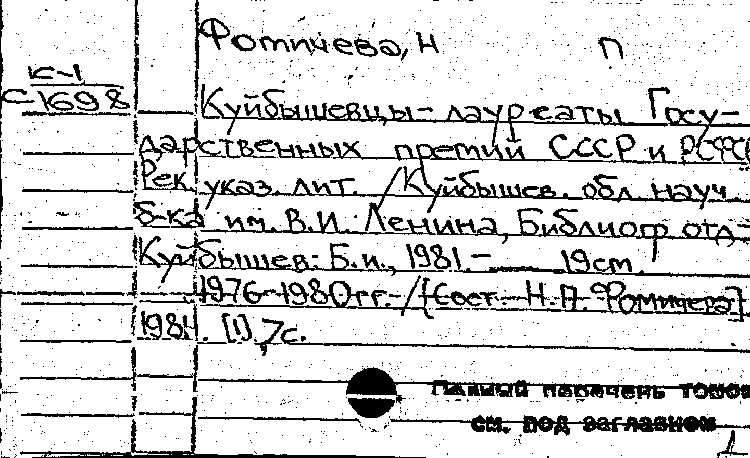 Фомичева, Н П
К-1
С1698
Куйбышевцы - лауреаты Госу-
дарственных премий СССР и РСФС
Рек. указ. лит. /Куйбышев. обл. науч.
б-ка им. В.И. Ленина, Библиогр. отд-
Куйбышев: Б.и., 1981. - 19см.
1976-1980гг. - /[Сост. Н.П. Фомичева]
1981. [1], 7с.
Полный перечень томов
см. под заглавном
1